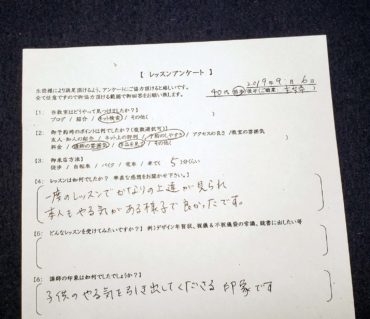 【 レッスンアンケート 】
2019年 9月 6日
生徒様により満足頂けるよう、アンケートにご協力頂けると嬉しいです。
全て任意ですので御協力頂ける範囲で御回答をお願い致します。
40代
【1】 当教室はどうやって見つけましたか？
ブログ / 紹介 / ネット検索 / その他(
【2】 御予約時のポイントは何でしたか？(複数選択可)
友人・知人の紹介 / ネット上の評判 / 予約のしやすさ / アクセスの良さ / 教室の雰囲気
料金 / 講師の雰囲気 / 作品を見て / その他(
【3】 御来店方法
徒歩 / 自転車 / バイク / 電車 / 車で( 5 分)くらい
【4】 レッスンは如何でしたか？ 率直な感想をお聞かせ下さい。
一度のレッスンでかなりの上達が見られ
本人もやる気がある様子で良かったです。
【5】 どんなレッスンを受けてみたいですか？ 例)デザイン年賀状、祝儀&不祝儀袋の常識、履書に出したい等
【6】 講師の印象は如何でしたでしょうか？
子供のやる気を引き出してくださる印象です